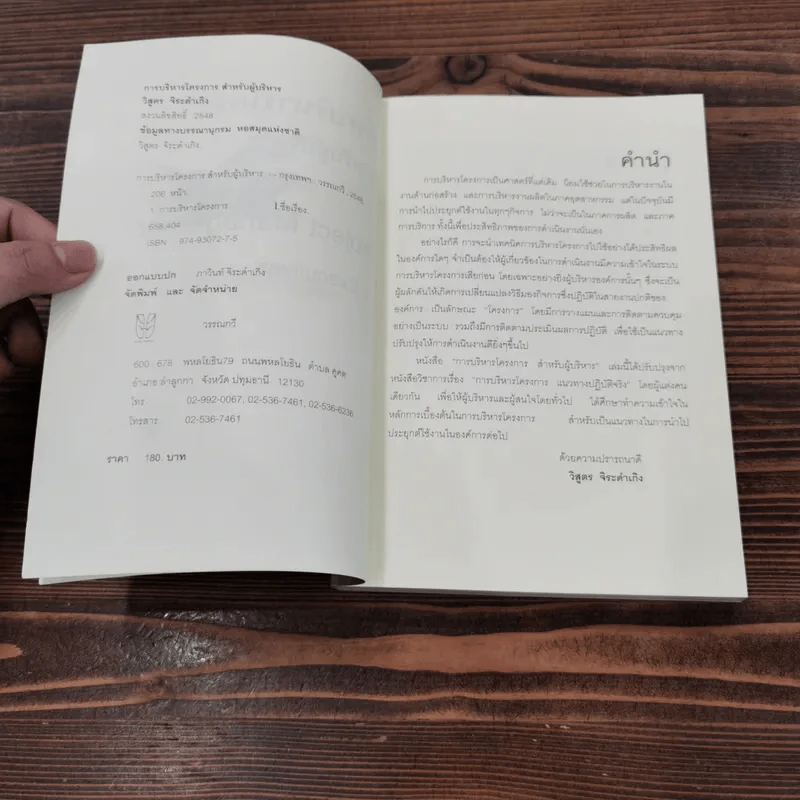 การบริหารโครงการ สำหรับผู้บริหาร
วิสูตร จิระดำเกิง
สงวนลิขสิทธิ์ 2548
ข้อมูลทางบรรณานุกรม หอสมุดแห่งชาติ
วิสูตร จิระดำเกิง.
การบริหารโครงการ สำหรับผู้บริหาร -- กรุงเทพฯ : วรรณกวี, 2548.
206 หน้า.
1. การบริหารโครงการ I.ชื่อเรื่อง.
658.404
ISBN 974-93072-7-5
ออกแบบปก ภาวินท์ จิระดำเกิง
จัดพิมพ์ และ จัดจำหน่าย
วรรณกวี
600 678 พหลโยธิน79 ถนนพหลโยธิน ตำบล คูคต
อำเภอ ลำลูกกา จังหวัด ปทุมธานี 12130
โทร 02-992-0067, 02-536-7461, 02-536-6236
โทรสาร 02-536-7461
ราคา 180 บาท
คำนำ
การบริหารโครงการเป็นศาสตร์ที่แต่เดิม นิยมใช้ช่วยในการบริหารงานใน
งานด้านก่อสร้าง และการบริหารงานผลิตในภาคอุตสาหกรรม แต่ในปัจจุบันมี
การนำไปประยุกต์ใช้งานในทุกๆกิจการ ไม่ว่าจะเป็นในภาคการผลิต และภาค
การบริการ ทั้งนี้เพื่อประสิทธิภาพของการดำเนินงานนั่นเอง
อย่างไรก็ดี การจะนำเทคนิคการบริหารโครงการไปใช้อย่างได้ประสิทธิผล
ในองค์การใดๆ จำเป็นต้องให้ผู้เกี่ยวข้องในการดำเนินงานมีความเข้าใจในระบบ
การบริหารโครงการเสียก่อน โดยเฉพาะอย่างยิ่งผู้บริหารองค์การนั้นๆ ซึ่งจะเป็น
ผู้ผลักดันให้เกิดการเปลี่ยนแปลงวิธีมองกิจการซึ่งปฏิบัติในสายงานปกติของ
องค์การ เป็นลักษณะ "โครงการ" โดยมีการวางแผนและการติดตามควบคุม
อย่างเป็นระบบ รวมถึงมีการติดตามประเมินผลการปฏิบัติ เพื่อใช้เป็นแนวทาง
ปรับปรุงให้การดำเนินงานดียิ่งๆขึ้นไป
หนังสือ "การบริหารโครงการ สำหรับผู้บริหาร" เล่มนี้ได้ปรับปรุงจาก
หนังสือวิชาการเรื่อง "การบริหารโครงการ แนวทางปฏิบัติจริง" โดยผู้แต่งคน
เดียวกัน เพื่อให้ผู้บริหารและผู้สนใจโดยทั่วไป ได้ศึกษาทำความเข้าใจใน
หลักการเบื้องต้นในการบริหารโครงการ สำหรับเป็นแนวทางในการนำไป
ประยุกต์ใช้งานในองค์การต่อไป
ด้วยความปรารถนาดี
วิสูตร จิระดำเกิง